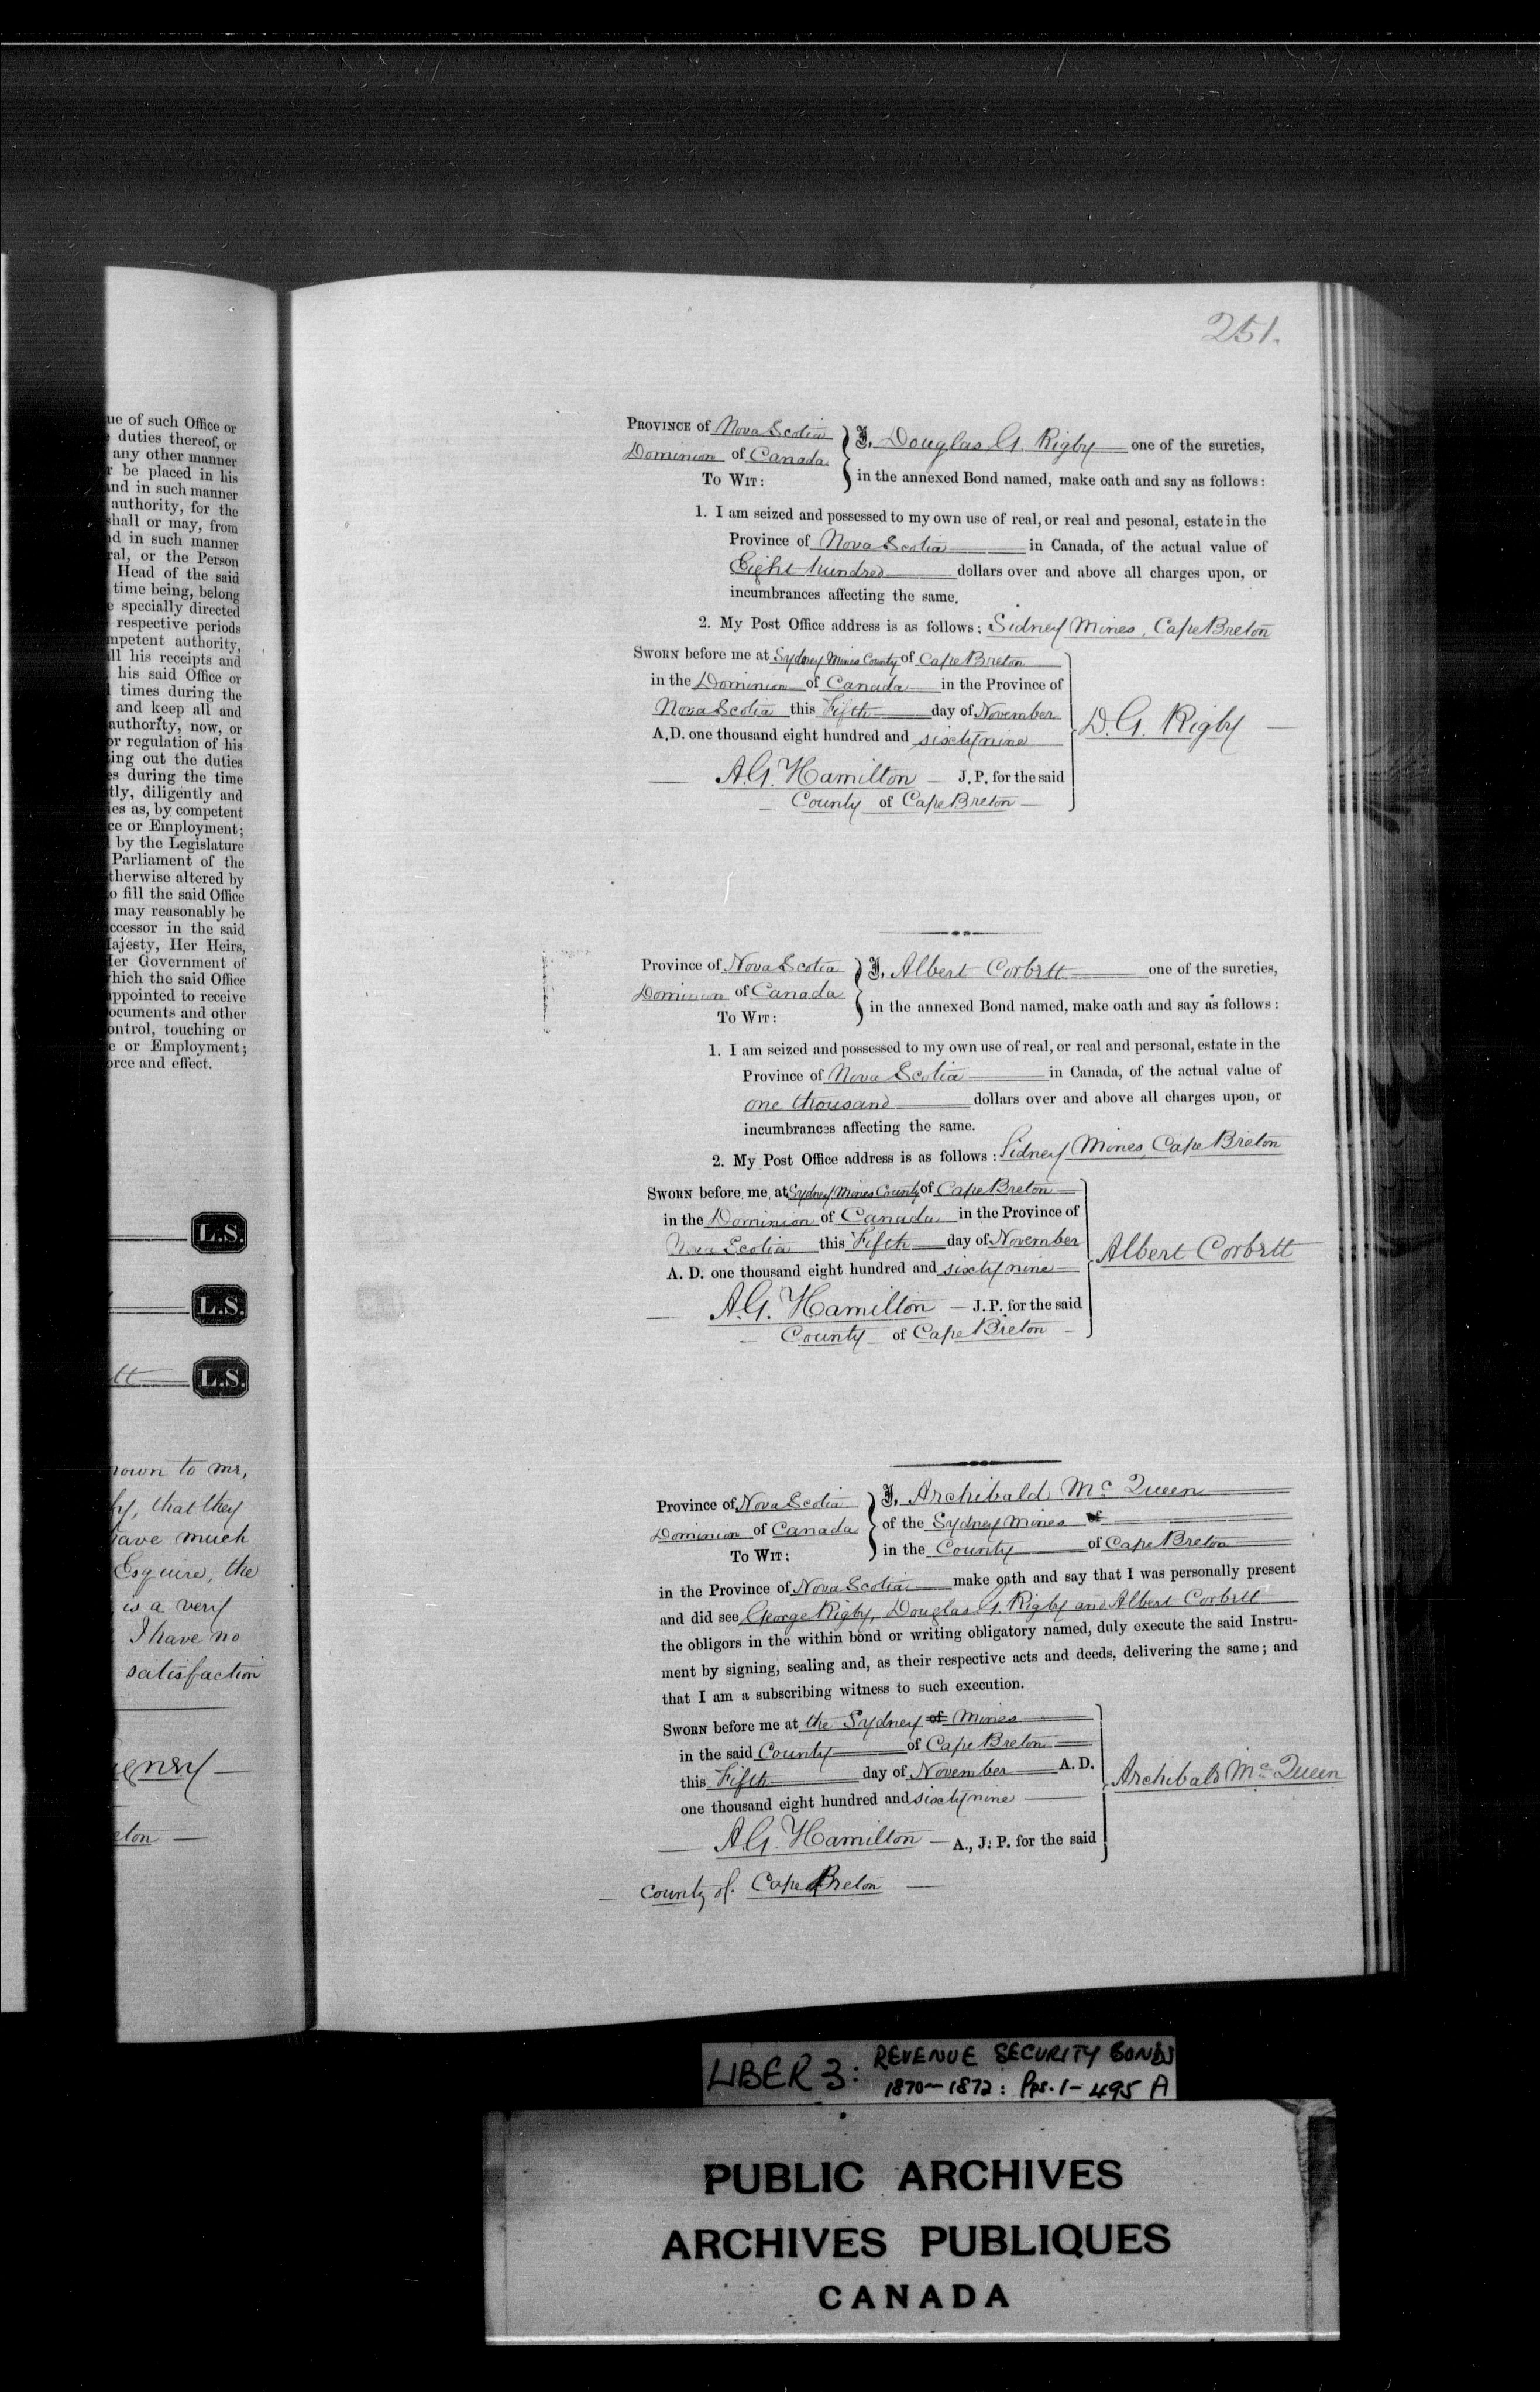 ue of such Office or
duties thereof, or
any other manner
r be placed in his
and in such manner
authority, for the
shall or may, from
nd in such manner
ral, or the Person
Head of the said
time being, belong
e specially directed
respective periods
mpetent authority,
all his receipts and
his said Office or
times during the
and keep all and
authority, now, or
or regulation of his
ing out the duties
es during the time
tly, diligently and
ies as, by competent
ce or Employment;
by the Legislature
Parliament of the
therwise altered by
to fill the said Office
may reasonably be
ccessor in the said
Majesty, Her Heirs,
Her Government of
which the said Office
appointed to receive
ocuments and other
ontrol, touching or
e or Employment;
orce and effect.
L.S.
L.S.
tt L.S.
nown to me,
fy, that they
have much
Esquire, the
is a very
I have no
satisfaction
eton
251.
PROVINCE of Nova Scotia
Dominion of Canada
TO WIT:
I, Douglas G. Rigby one of the sureties,
in the annexed Bond named, make oath and say as follows:
1. I am seized and possessed to my own use of real, or real and pesonal, estate in the
Province of Nova Scotia in Canada, of the actual value of
Eight hundred dollars over and above all charges upon, or
incumbrances affecting the same.
2. My Post Office address is as follows: Sidney Mines, Cape Breton
SWORN before me at Sydney Mines County of Cape Breton
in the Dominion of Canada in the Province of
Nova Scotia this Fifth day of November
A.D. one thousand eight hundred and sixty nine
D. G. Rigby
A. G. Hamilton J.P. for the said
County of Cape Breton
Province of Nova Scotia
Dominion of Canada
TO WIT:
I, Albert Corbett one of the sureties,
in the annexed Bond named, make oath and say as follows:
1. I am seized and possessed to my own use of real, or real and personal, estate in the
Province of Nova Scotia in Canada, of the actual value of
one thousand dollars over and above all charges upon, or
incumbrances affecting the same.
2. My Post Office address is as follows: Sidney Mines, Cape Breton
SWORN before me at Sydney Mines County of Cape Breton
in the Dominion of Canada in the Province of
Nova Scotia this Fifth day of November
A. D. one thousand eight hundred and sixty nine
Albert Corbett
A. G. Hamilton J.P. for the said
County of Cape Breton
Province of Nova Scotia
Dominion of Canada
TO WIT:
I, Archibald McQueen
of the Sydney Mines of
in the County of Cape Breton
in the Province of Nova Scotia make oath and say that I was personally present
and did see George Rigby, Douglas G. Rigby and Albert Corbett
the obligors in the within bond or writing obligatory named, duly execute the said Instru-
ment by signing, sealing and, as their respective acts and deeds, delivering the same; and
that I am a subscribing witness to such execution.
SWORN before me at the Sydney of Mines
in the said County of Cape Breton
this Fifth day of November A.D.
one thousand eight hundred and sixty nine
Archibald McQueen
A. G. Hamilton A., J. P. for the said
County of. Cape Breton
LIBER 3: REVENUE SECURITY BONDS
1870-1872: Pps. 1-495 A
PUBLIC ARCHIVES
ARCHIVES PUBLIQUES
CANADA